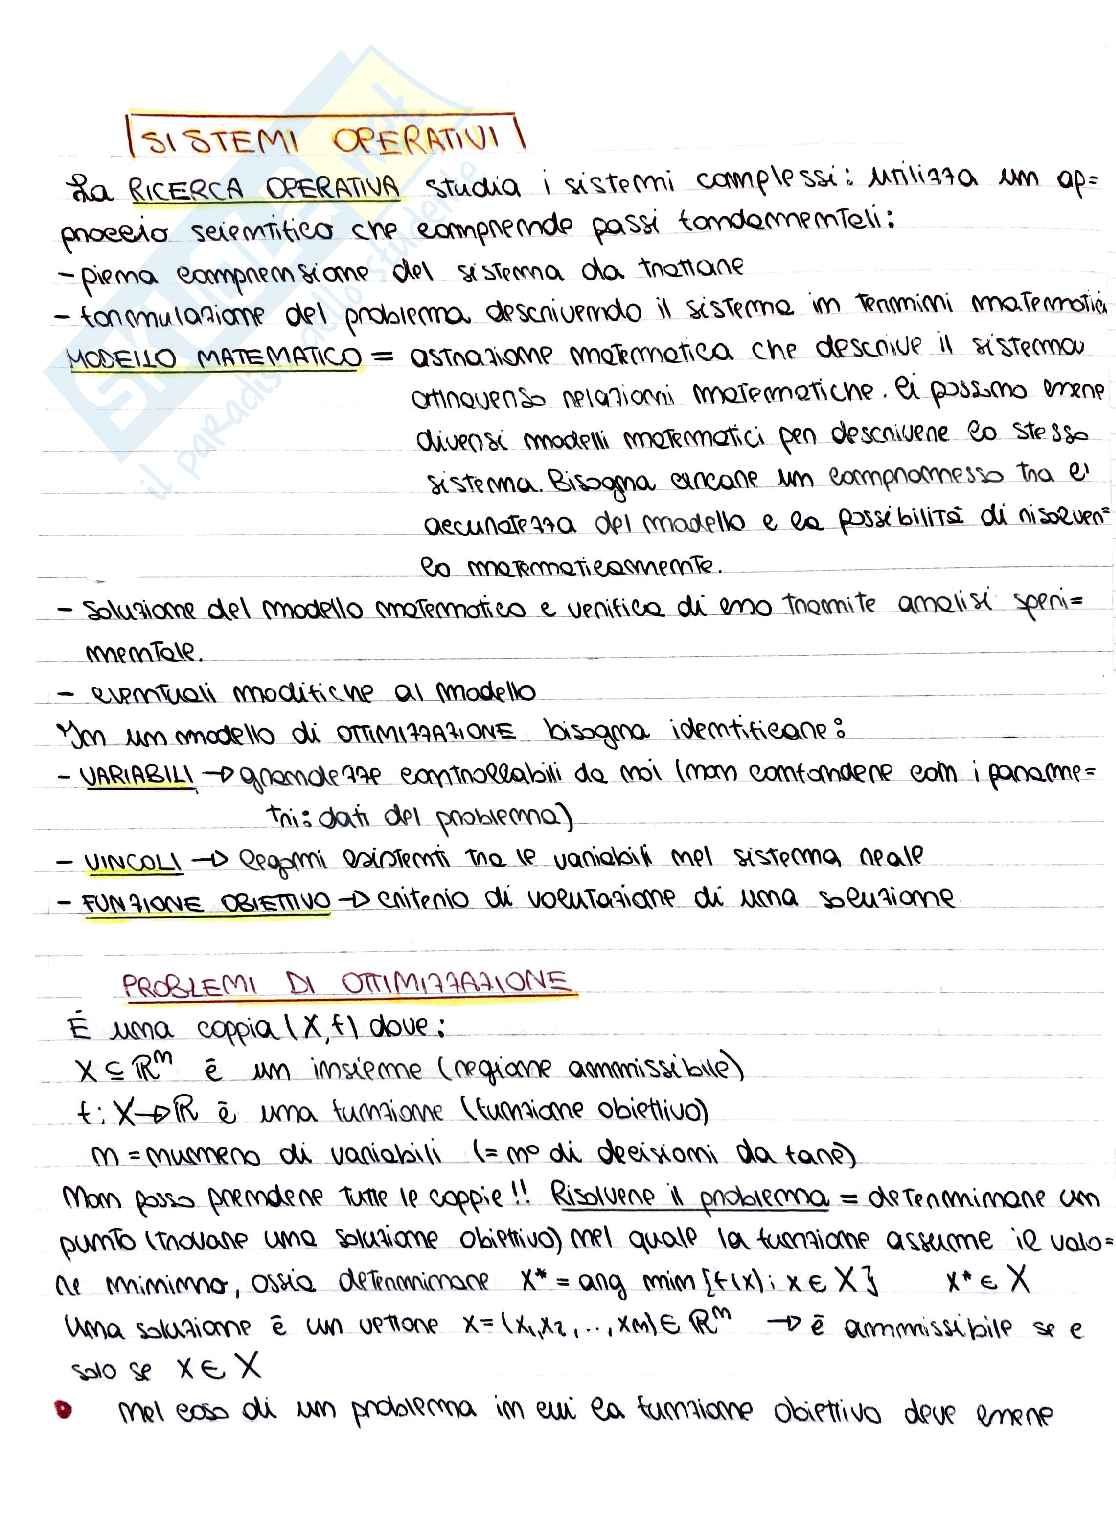 SISTEMI OPERATIVI
La RICERCA OPERATIVA studia i sistemi complessi: utilizza un ap=
proccio scientifico che comprende passi fondamentali:
- piena comprensione del sistema da trattare
- formulazione del problema descrivendo il sistema in termini matematici
MODELLO MATEMATICO = astrazione matematica che descrive il sistema
attraverso relazioni matematiche. Ci possono essere
diversi modelli matematici per descrivere lo stesso
sistema. Bisogna cercare un compromesso tra l'
accuratezza del modello e la possibilità di risolver=
lo matematicamente.
- soluzione del modello matematico e verifica di esso tramite analisi speri=
mentale.
- eventuali modifiche al modello
In un modello di OTTIMIZZAZIONE bisogna identificare:
- VARIABILI → grandezze controllabili da noi (non confondere con i parame=
tri: dati del problema)
- VINCOLI → legami esistenti tra le variabili nel sistema reale
- FUNZIONE OBIETTIVO → criterio di valutazione di una soluzione
PROBLEMI DI OTTIMIZZAZIONE
È una coppia (X, f) dove:
X ⊆ ℝⁿ è un insieme (regione ammissibile)
f: X → ℝ è una funzione (funzione obiettivo)
n = numero di variabili (= n° di decisioni da fare)
Non posso prendere tutte le coppie!! Risolvere il problema = determinare un
punto (trovare una soluzione obiettivo) nel quale la funzione assume il valo=
re minimo, ossia determinare x* = arg min {f(x): x ∈ X} x* ∈ X
Una soluzione è un vettore x = (x₁, x₂, .., xₙ) ∈ ℝⁿ → è ammissibile se e
solo se x ∈ X
• Nel caso di un problema in cui la funzione obiettivo deve essere
SKUOLA.net
il paradiso dello studente